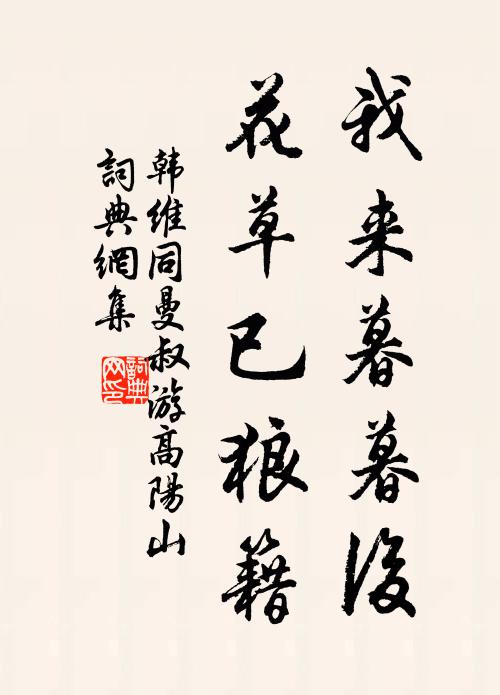 我来暮暮後
花草已狼籍
韩维同曼叔游高陽山
詞典網集
詞典網印